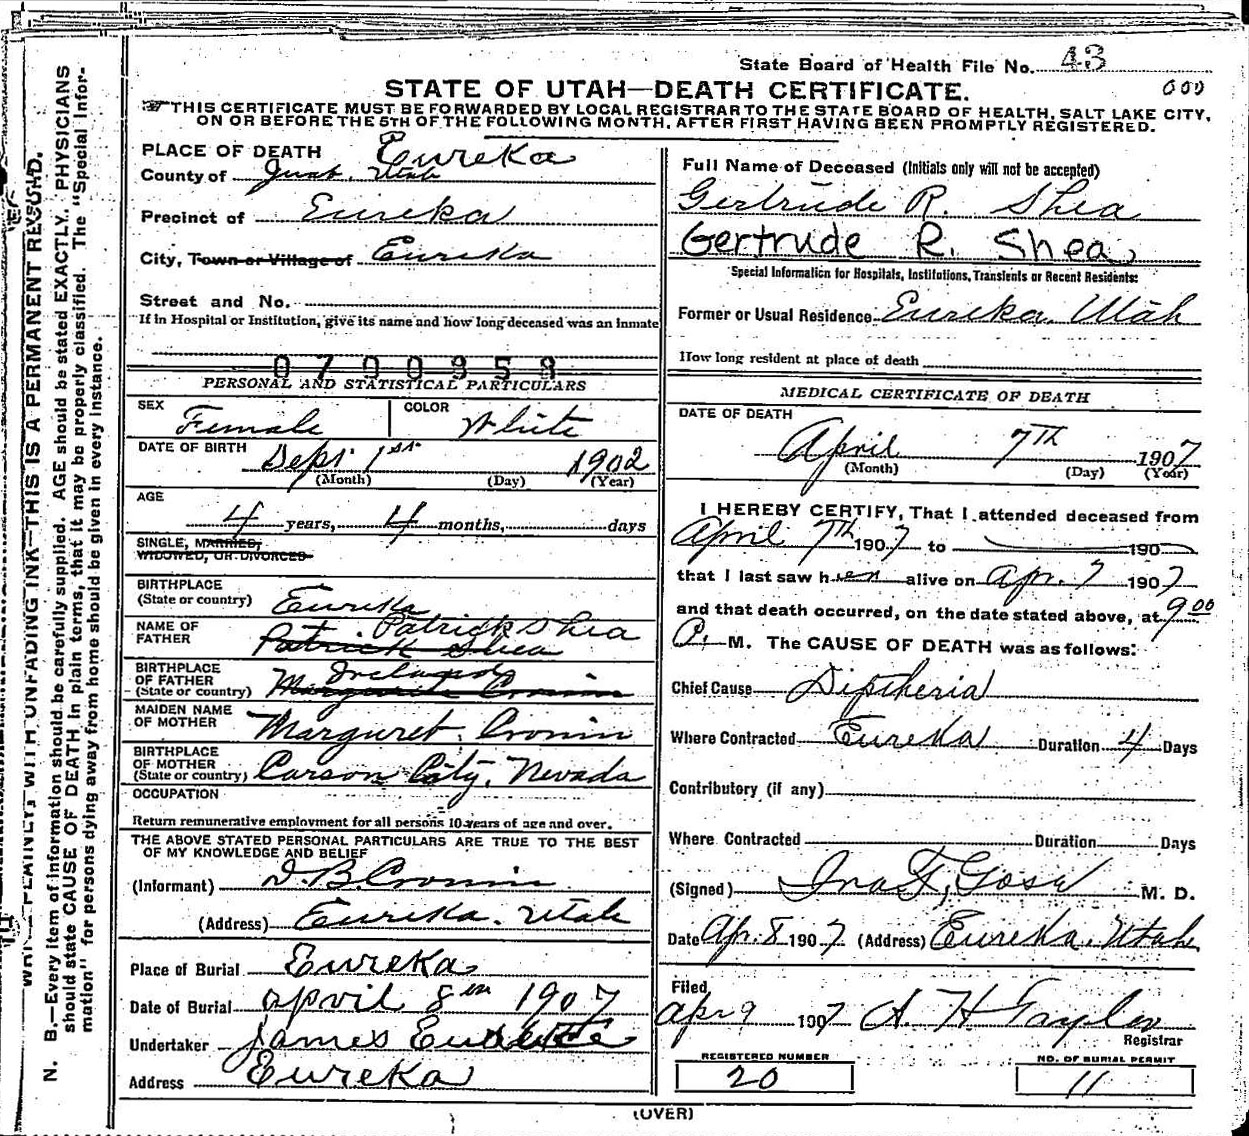 State Board of Health File No. 43
000
STATE OF UTAH—DEATH CERTIFICATE.
☞THIS CERTIFICATE MUST BE FORWARDED BY LOCAL REGISTRAR TO THE STATE BOARD OF HEALTH, SALT LAKE CITY,
ON OR BEFORE THE 5TH OF THE FOLLOWING MONTH, AFTER FIRST HAVING BEEN PROMPTLY REGISTERED.
PLACE OF DEATH Eureka
County of Juab. Utah
Precinct of Eureka
City, Town or Village of Eureka
Street and No.
If in Hospital or Institution, give its name and how long deceased was an inmate
0700958
PERSONAL AND STATISTICAL PARTICULARS
SEX Female COLOR White
DATE OF BIRTH Sept. 1st 1902
(Month) (Day) (Year)
AGE
4 years, 4 months, days
SINGLE, MARRIED,
WIDOWED, OR DIVORCED
BIRTHPLACE
(State or country) Eureka
NAME OF FATHER Patrick Shea
Patrick Shea
BIRTHPLACE OF FATHER Ireland
(State or country) Marguerite Cronin
MAIDEN NAME OF MOTHER Margaret Cronin
BIRTHPLACE OF MOTHER
(State or country) Carson City, Nevada
OCCUPATION
Return remunerative employment for all persons 10 years of age and over.
THE ABOVE STATED PERSONAL PARTICULARS ARE TRUE TO THE BEST
OF MY KNOWLEDGE AND BELIEF
(Informant) D. B. Cronin
(Address) Eureka, Utah
Place of Burial Eureka
Date of Burial april 8th 1907
Undertaker James
Address Eureka
Full Name of Deceased (Initials only will not be accepted)
Gertrude R. Shea
Gertrude R. Shea
Special Information for Hospitals, Institutions, Transients or Recent Residents:
Former or Usual Residence Eureka, Utah
How long resident at place of death
MEDICAL CERTIFICATE OF DEATH
DATE OF DEATH
April 7TH 1907
(Month) (Day) (Year)
I HEREBY CERTIFY, That I attended deceased from
April 7th 1907 to 190
that I last saw her alive on Apr. 7 1907
and that death occurred, on the date stated above, at 9 00
P. M. The CAUSE OF DEATH was as follows:
Chief Cause Diptheria
Where Contracted Eureka Duration 4 Days
Contributory (if any)
Where Contracted Duration Days
(Signed) M. D.
Date Apr. 8 1907 (Address) Eureka, Utah
Filed
Apr 9 1907 A. H. Taylor
Registrar
REGISTERED NUMBER
20
NO. OF BURIAL PERMIT
11
(OVER)
N. B.—Every item of information should be carefully supplied. AGE should be stated EXACTLY. PHYSICIANS
should state CAUSE OF DEATH in plain terms, that it may be properly classified. The "Special Infor-
mation" for persons dying away from home should be given in every instance.
PLAINLY, WITH UNFADING INK—THIS IS A PERMANENT RECORD.